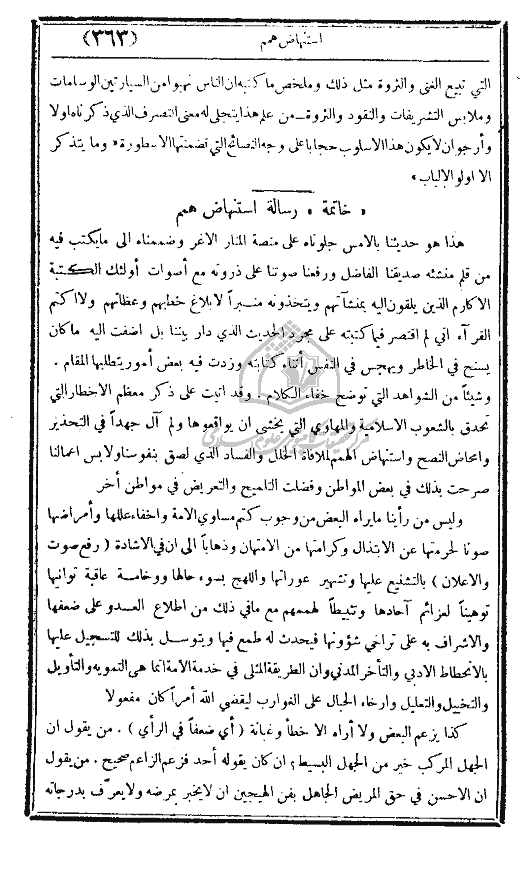 استنهاض همم
(٣٦٣)
التي تبيع الغنى والثروة مثل ذلك وملخص ما كتبه ان الناس نهبوا من السيارتين الوسامات
وملابس التشريفات والنقود والثروة ــ من علم هذا يتجلى له معنى التصرف الذي ذكرناه اولا
وأرجو ان لا يكون هذا الاسلوب حجابا على وجه النصائح التي تضمنتها الاسطورة « وما يتذكر
الا اولو الالباب »
« خاتمة » رسالة استنهاض همم
هذا هو حديثنا بالامس جلوناه على منصة المنار الاغر وضممناه الى ما يكتب فيه
من قلم منشئه صديقنا الفاضل ورفعنا صوتنا على ذروته مع أصوات أولئك الكتبة
الاكارم الذين يلقون اليه بمنشآتهم ويتخذونه منبراً لابلاغ خطبهم وعظاتهم ولا اكتم
القراء اني لم اقتصر فيما كتبته على مجرد الحديث الذي دار بيننا بل اضفت اليه ما كان
يسنح في الخاطر ويهجس في النفس أثناء كتابته وزدت فيه بعض أمور يتطلبها المقام .
وشيئاً من الشواهد التي توضح خفاء الكلام . وقد اتيت على ذكر معظم الاخطار التي
تحدق بالشعوب الاسلامية والمهاوي التي يخشى ان يواقعوها ولم آل جهداً في التحذير
وامحاض النصح واستنهاض الهمم لملافاة الخلل والفساد الذي لصق بنفوسنا ولابس اعمالنا
صرحت بذلك في بعض المواطن وفضلت التلميح والتعريض في مواطن أخر
وليس من رأينا ما يراه البعض من وجوب كتم مساوي الامة واخفاء عللها وأمراضها
صونا لحرمتها عن الابتذال وكرامتها من الامتهان وذهاباً الى ان في الاشادة ( رفع صوت
والاعلان ) بالتشنيع عليها وتشهير عوراتها واللهج بسوء حالها ووخامة عاقبة توانيها
توهيناً لعزائم آحادها وتثبيطاً لهممهم مع ما في ذلك من اطلاع العدو على ضعفها
والاشراف به على تراخي شؤونها فيحدث له طمع فيها ويتوسل بذلك للتسجيل عليها
بالانحطاط الادبي والتأخر المدني وان الطريقة المثلى في خدمة الامة انما هى التمويه والتأويل
والتخييل والتعليل وارخاء الحبال على الغوارب ليقضي الله أمراً كان مفعولا
كذا يزعم البعض ولا أراه الا خطأ وغبانة ( أي ضعفاً في الرأي ) . من يقول ان
الجهل المركب خير من الجهل البسيط؟ ان كان يقوله أحد فزعم الزاعم صحيح . من يقول
ان الاحسن في حق المريض الجاهل بفن الهيجين ان لا يخبر بمرضه ولا يعرّف بدرجاته